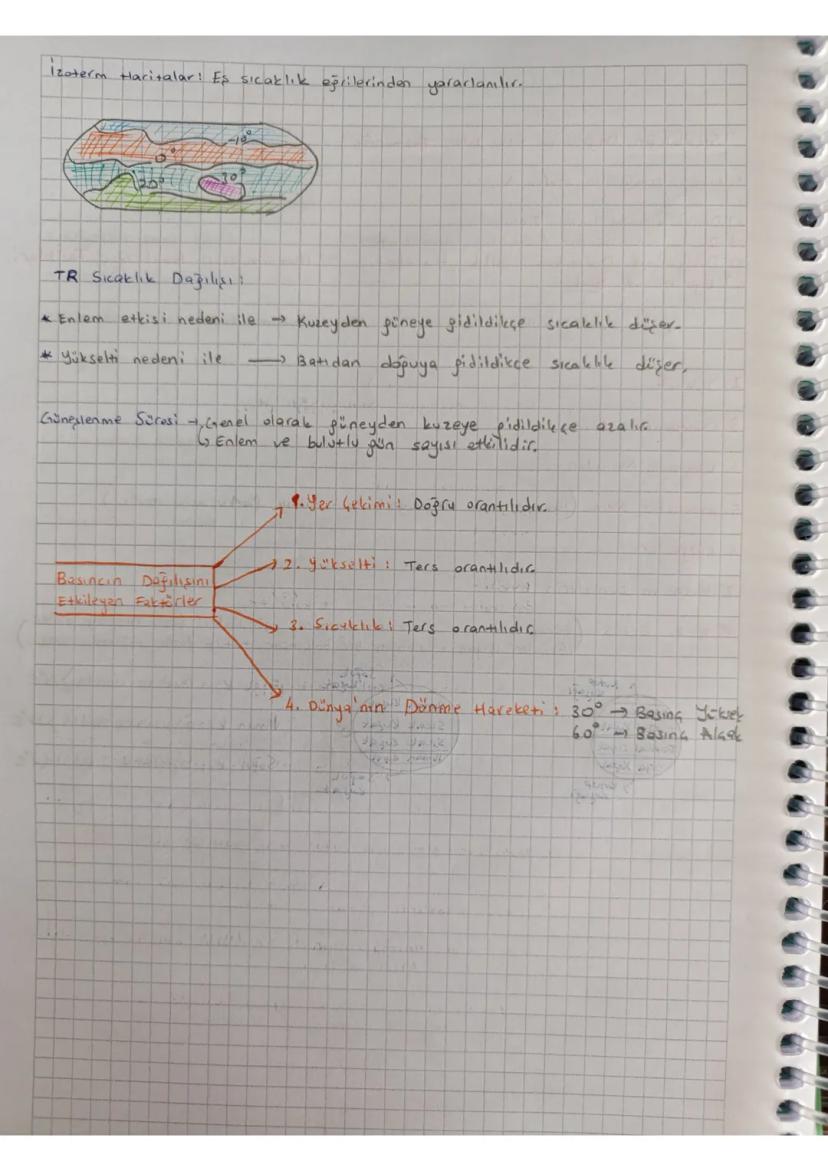 İzoterm Haritalar: Eş sıcaklık eğrilerinden yararlanılır.
-10°
0°
20°
30°
TR Sıcaklık Dağılışı:
* Enlem etkisi nedeni ile → Kuzeyden güneye gidildikçe sıcaklık düşer.
* Yükselti nedeni ile → Batıdan doğuya gidildikçe sıcaklık düşer.
Güneşlenme Süresi → Genel olarak güneyden kuzeye gidildikçe azalır.
↳ Enlem ve bulutlu gün sayısı etkilidir.
1. Yer Çekimi: Doğru orantılıdır.
2. Yükselti: Ters orantılıdır.
Basıncın Dağılışını
Etkileyen Faktörler
3. Sıcaklık: Ters orantılıdır.
4. Dünya'nın Dönme Hareketi: 30° → Basınç Yüksek
60° → Basınç Alçak